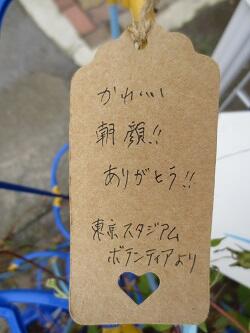 かわいい
朝顔!!
ありがとう!!
東京スタジアム
ボランティアより